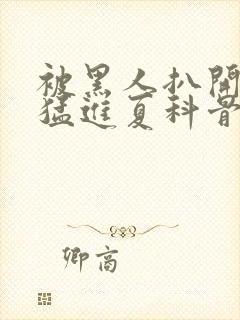 被黑人扒開
猛進夏科普
卿高